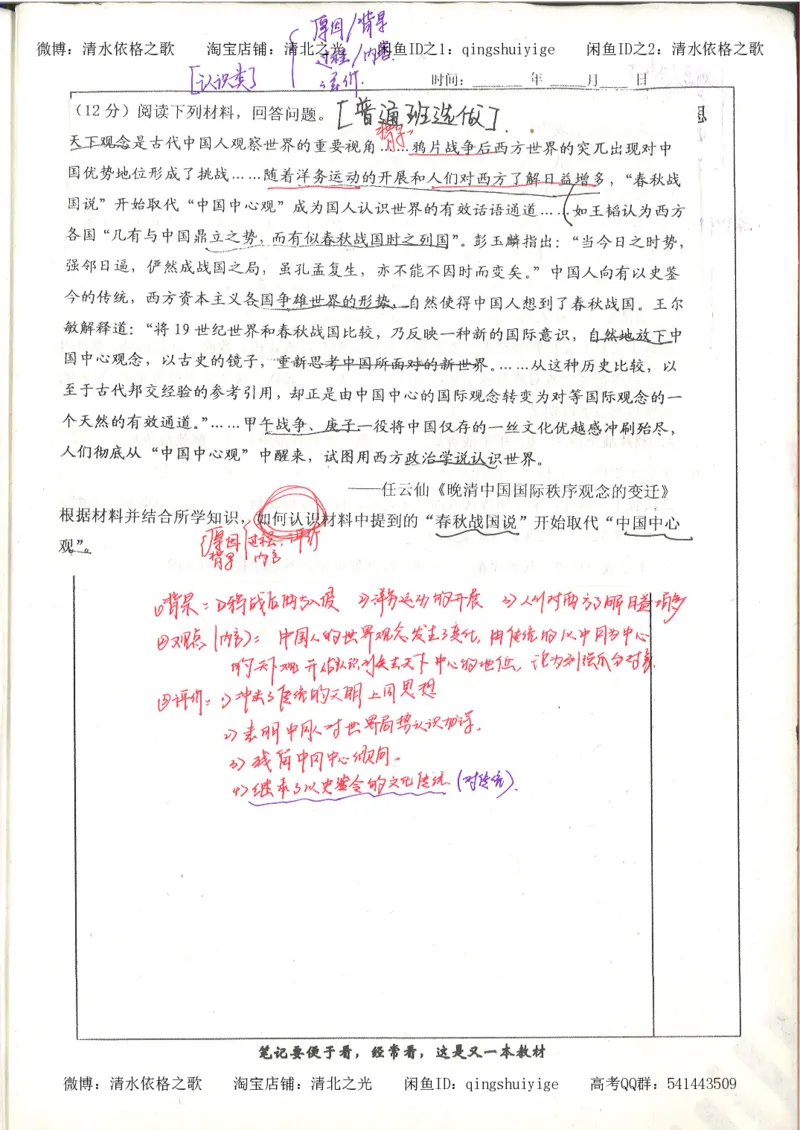 原因/背景
微博：清水依格之歌 淘宝店铺：清北之光 闲鱼ID之1：qingshuiyige 闲鱼ID之2：清水依格之歌
过程/内容
[认识类]
评价.
时间：______年____月__日
（12分）阅读下列材料，回答问题。[普通班选做].
背景
天下观念是古代中国人观察世界的重要视角……鸦片战争后西方世界的突兀出现对中
国优势地位形成了挑战……随着洋务运动的开展和人们对西方了解日益增多，“春秋战
国说”开始取代“中国中心观”成为国人认识世界的有效话语通道……如王韬认为西方
各国“几有与中国鼎立之势，而有似春秋战国时之列国”。彭玉麟指出：“当今日之时势，
强邻日逼，俨然成战国之局，虽孔孟复生，亦不能不因时而变矣。”中国人向有以史鉴
今的传统，西方资本主义各国争雄世界的形势，自然使得中国人想到了春秋战国。王尔
敏解释道：“将19世纪世界和春秋战国比较，乃反映一种新的国际意识，自然地放下中
国中心观念，以古史的镜子，重新思考中国所面对的新世界。……从这种历史比较，以
至于古代邦交经验的参考引用，却正是由中国中心的国际观念转变为对等国际观念的一
个天然的有效通道。”……甲午战争、庚子一役将中国仅存的一丝文化优越感冲刷殆尽，
人们彻底从“中国中心观”中醒来，试图用西方政治学说认识世界。
——任云仙《晚清中国国际秩序观念的变迁》
根据材料并结合所学知识，如何认识材料中提到的“春秋战国说”开始取代“中国中心
观”。
原因 过程 评价
背景 内容
①背景：1)鸦战后西方入侵 2)洋务运动的开展 3)人们对西方了解日益增多
②观点(内容)：中国人的世界观念发生了变化，由传统的以中国为中心
的天下观 开始认识到失去天下中心的地位，沦为列强瓜分对象
③评价：1)冲击了传统的天朝上国思想
2)表明中国人对世界局势认识加深.
3)残留中国中心倾向.
4)继承了以史鉴今的文化传统(对传统).
笔记要便于看，经常看，这是又一本教材
微博：清水依格之歌 淘宝店铺：清北之光 闲鱼ID：qingshuiyige 高考QQ群：541443509